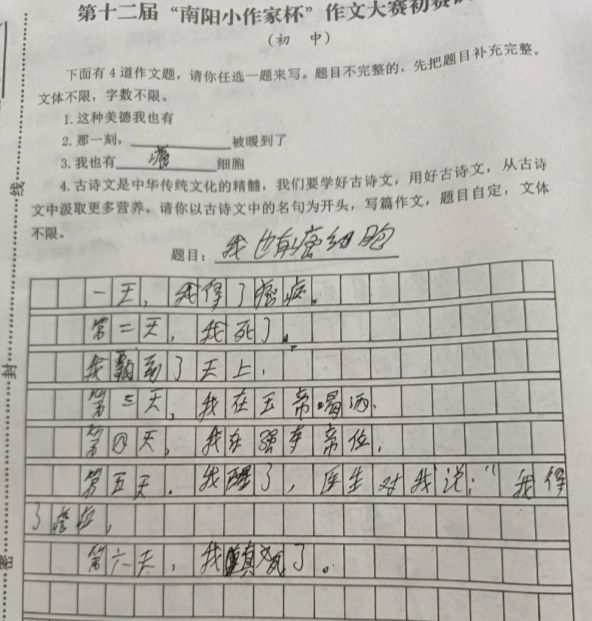 第十二届“南阳小作家杯”作文大赛初赛
（初 中）
下面有4道作文题，请你任选一题来写。题目不完整的，先把题目补充完整。
文体不限，字数不限。
1.这种美德我也有
2.那一刻，__________被暖到了
3.我也有 癌 细胞
4.古诗文是中华传统文化的精髓，我们要学好古诗文，用好古诗文，从古诗
文中汲取更多营养。请你以古诗文中的名句为开头，写篇作文，题目自定，文体
不限。
题目：我也有癌细胞
一天，我得了癌症。
第二天，我死了。
我飘到了天上，
第三天，我在玉帝喝酒，
第四天，我在强夺帝位，
第五天，我醒了，医生对我说：“我得
了癌症，
第六天，我真死了。
线
封
密